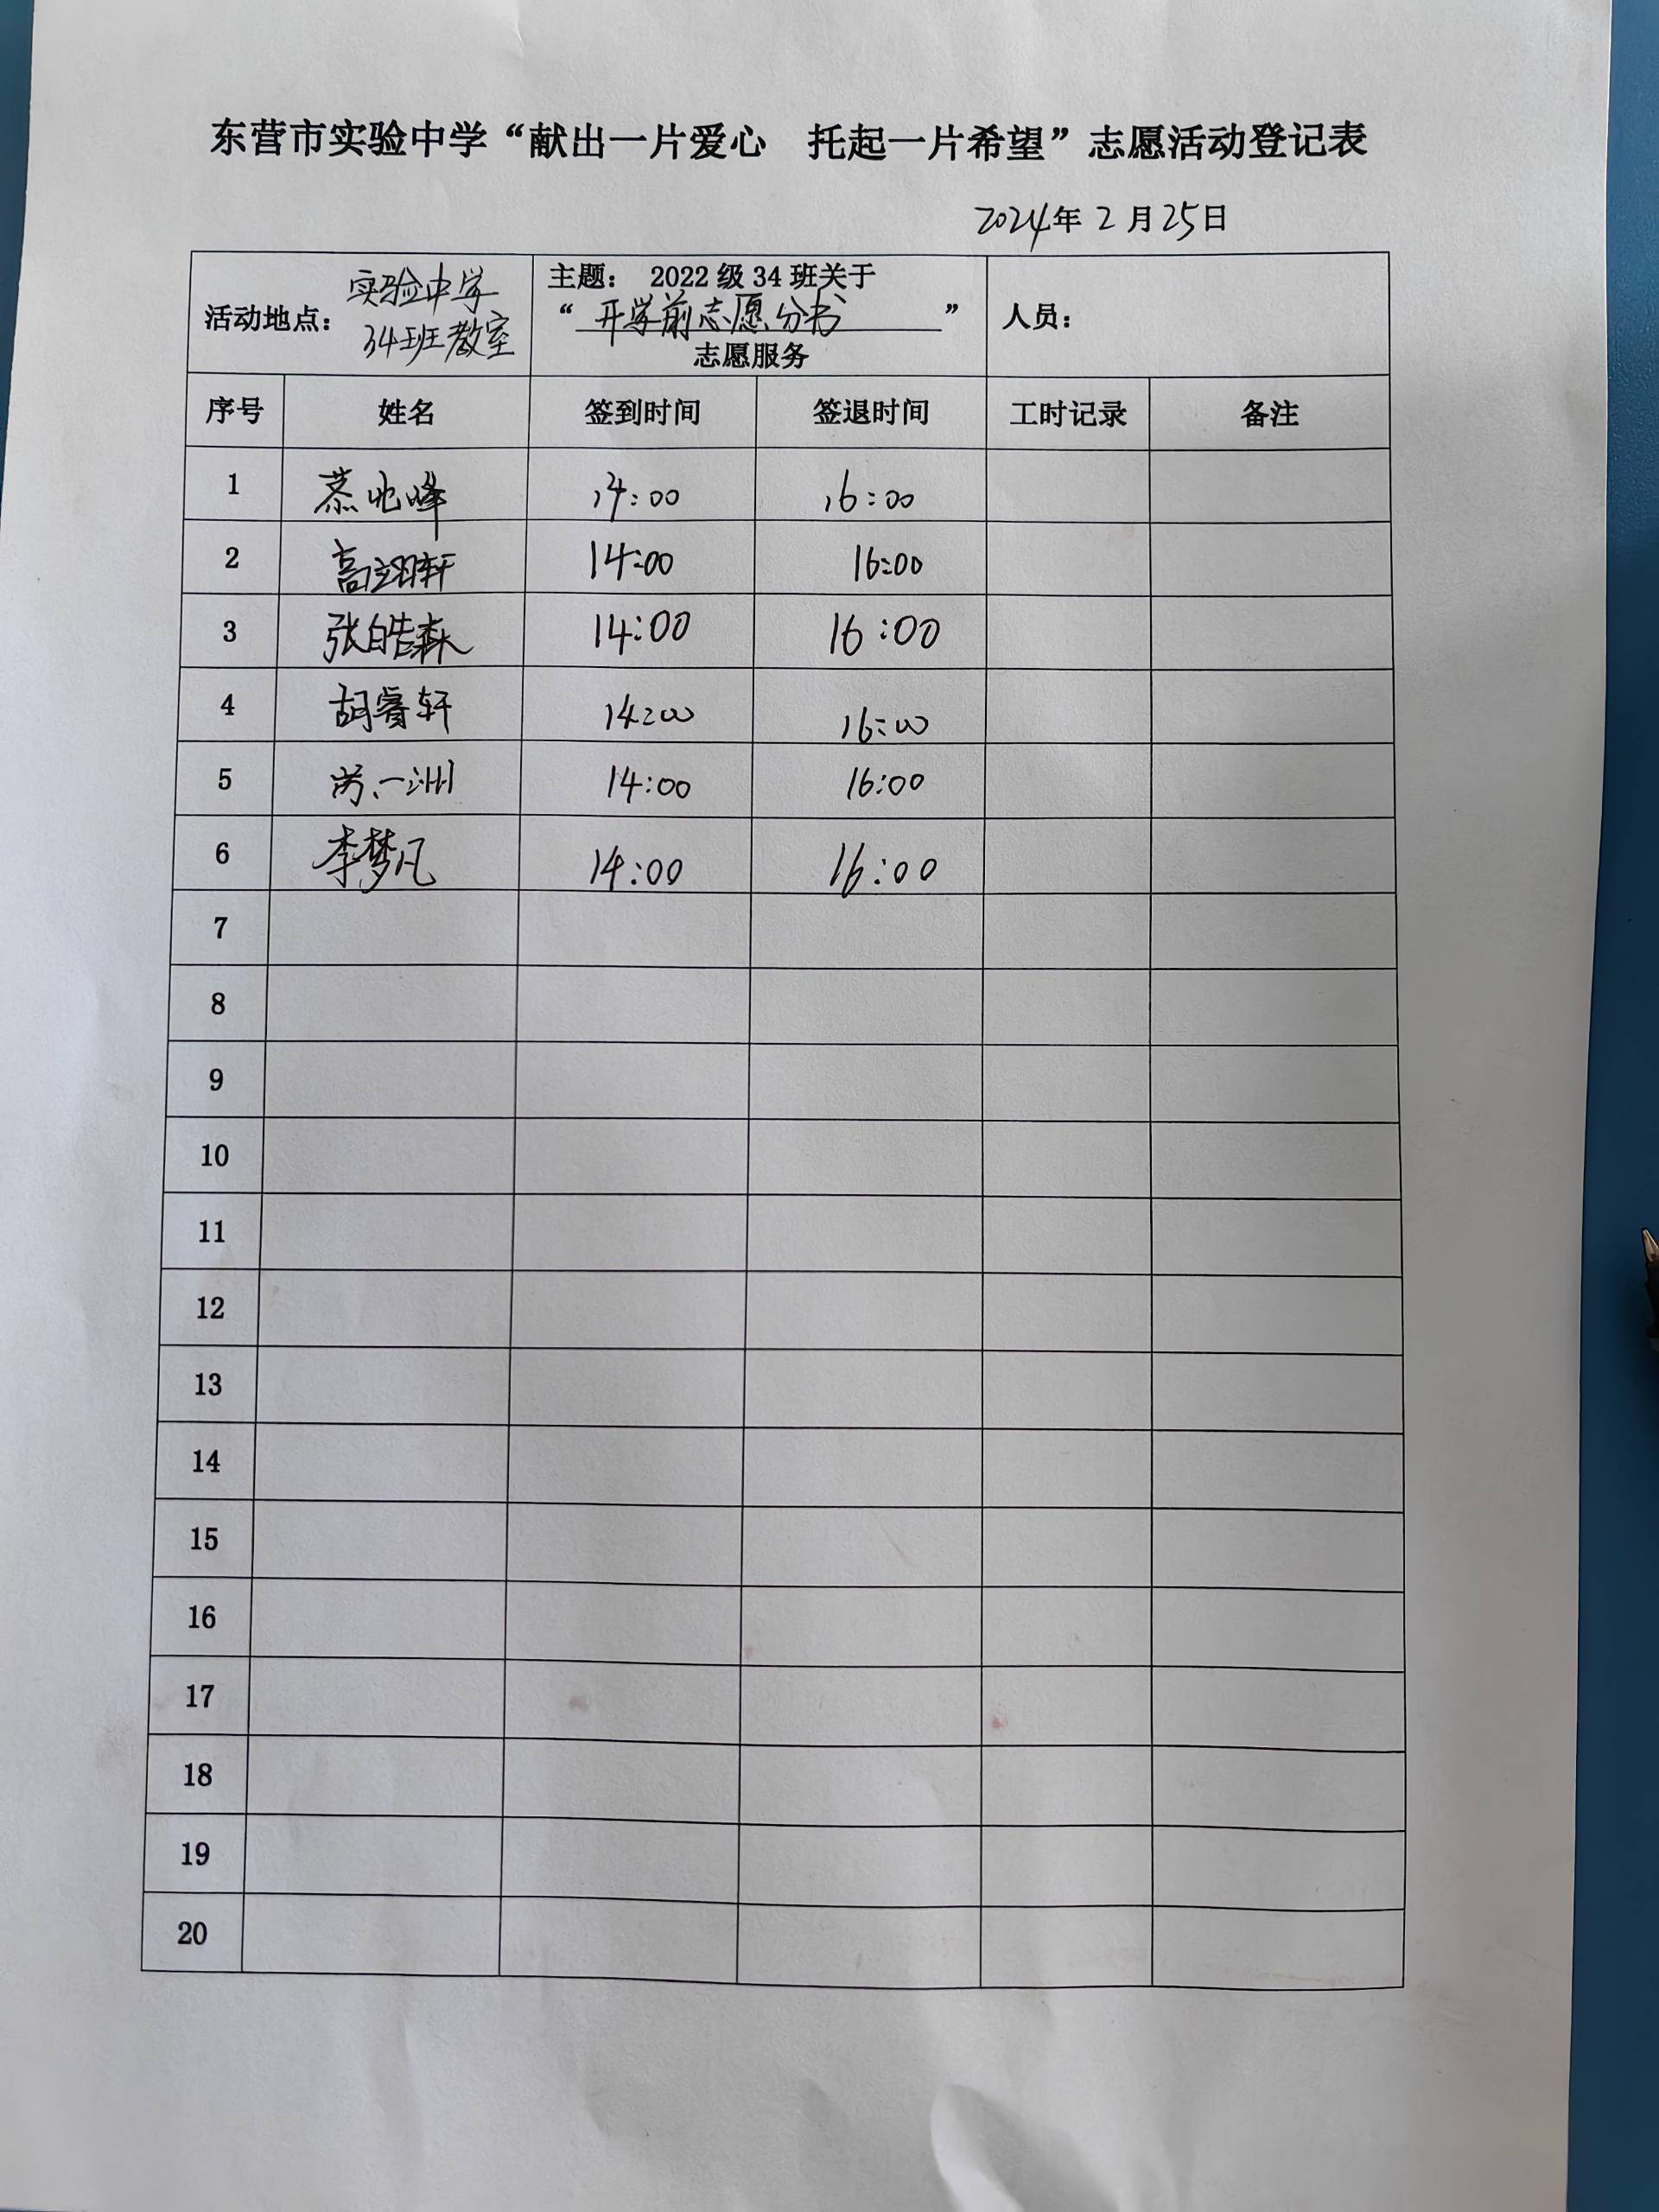 东营市实验中学“献出一片爱心 托起一片希望”志愿活动登记表
2024年 2 月 25日
活动地点： 实验中学 34班教室
主题： 2022 级 34 班关于
“ 开学前志愿分书 ”
志愿服务
人员：
序号 姓名 签到时间 签退时间 工时记录 备注
1 慕兆峰 14:00 16:00
2 高翊轩 14:00 16:00
3 张皓森 14:00 16:00
4 胡睿轩 14:00 16:00
5 一洲 14:00 16:00
6 李梦凡 14:00 16:00
7
8
9
10
11
12
13
14
15
16
17
18
19
20